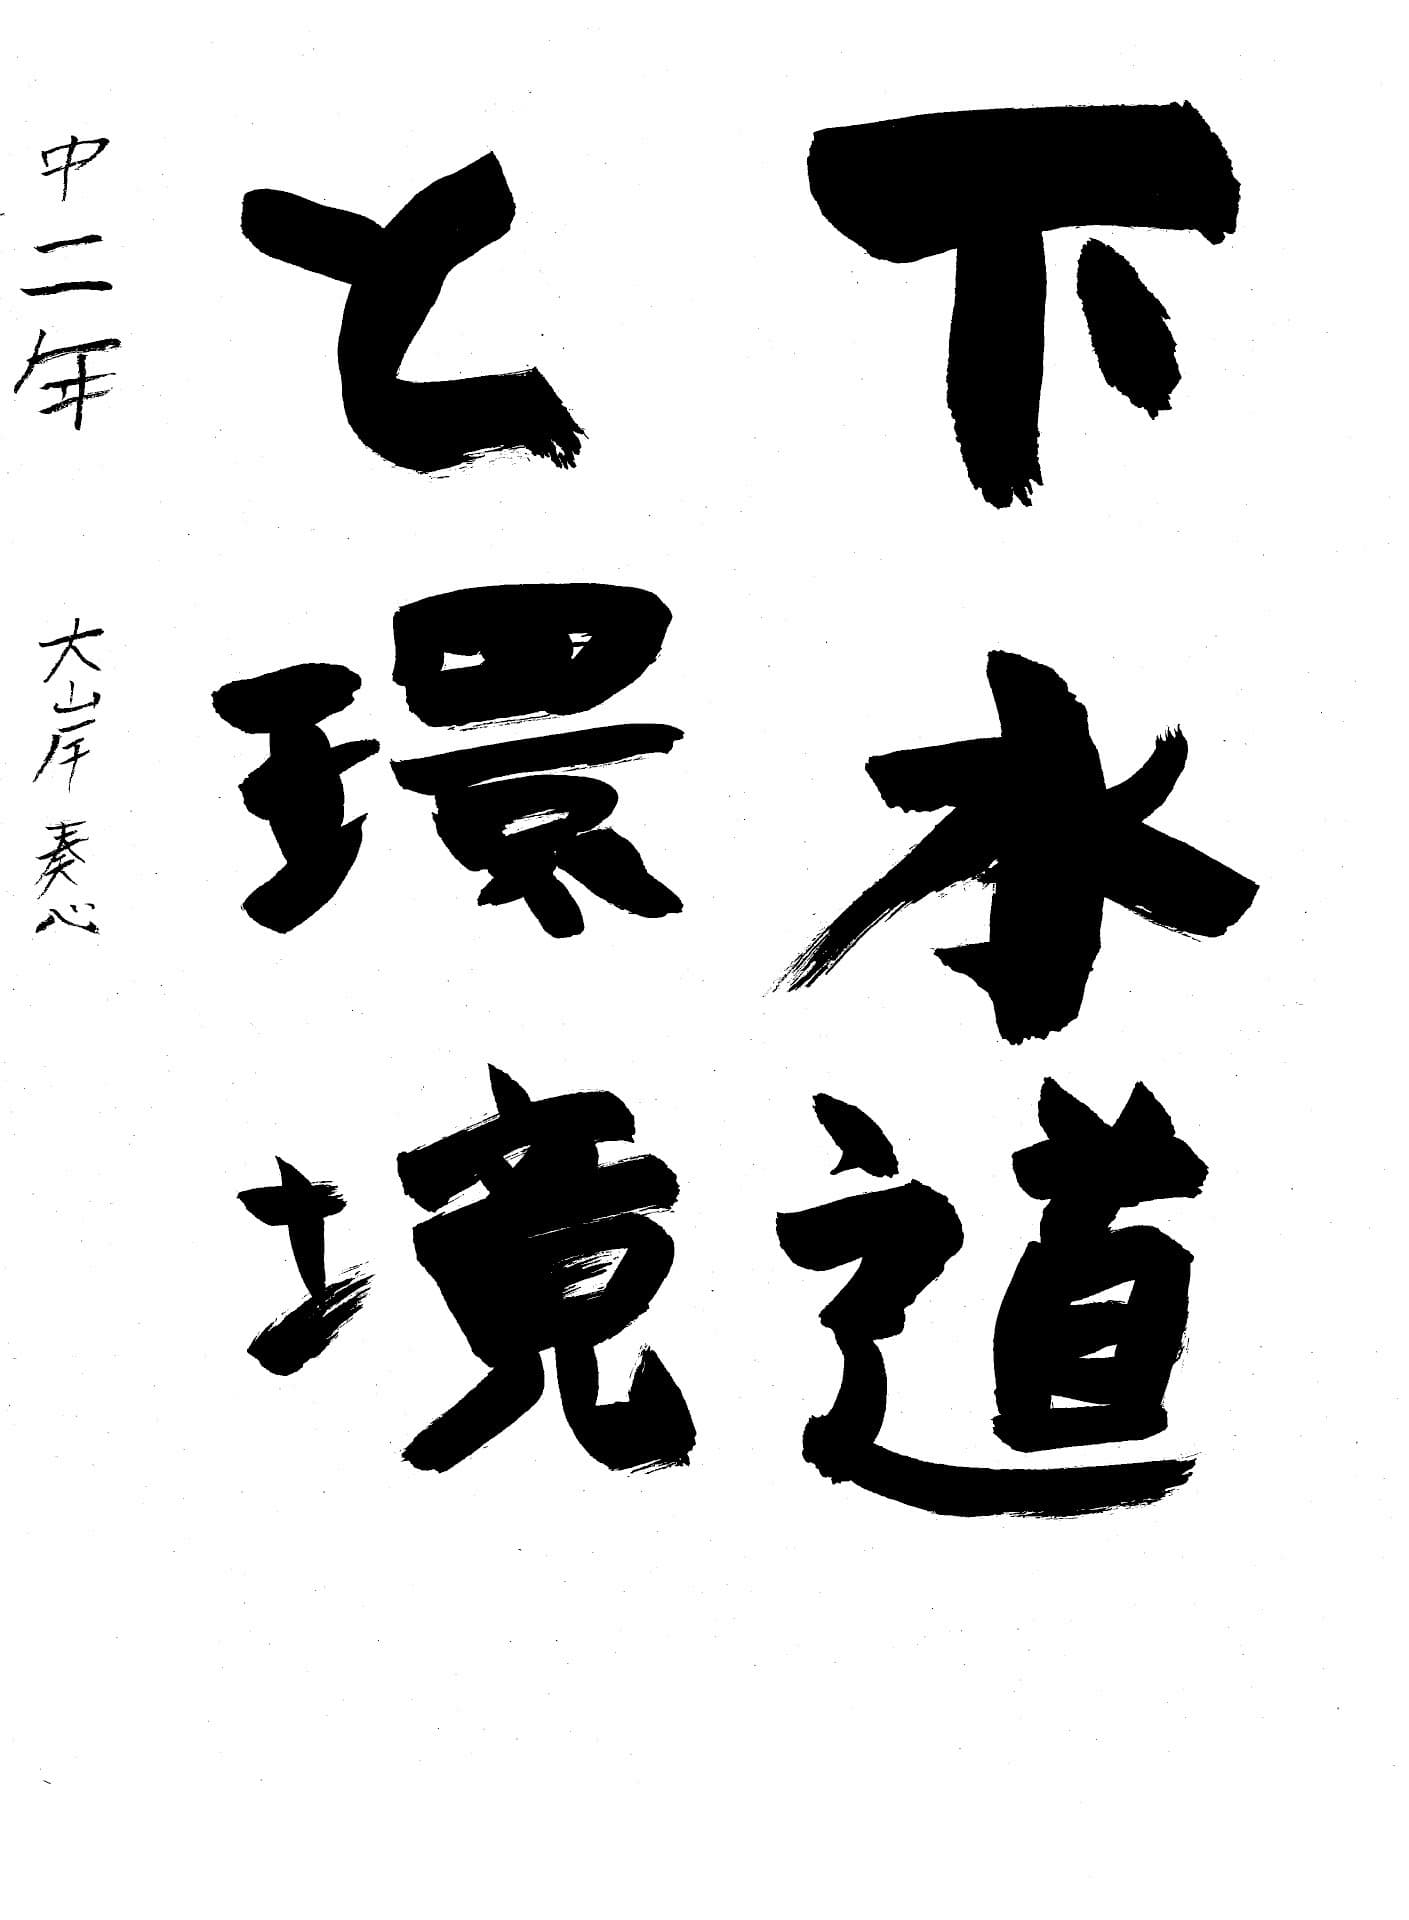 下水道
と環境
中二年 大岸奏心